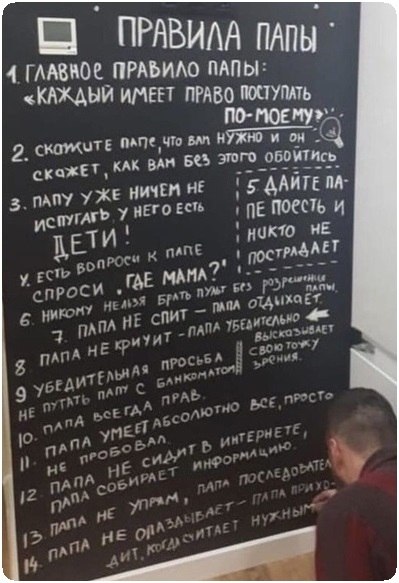 ПРАВИЛА ПАПЫ
1. ГЛАВНОЕ ПРАВИЛО ПАПЫ:
«КАЖДЫЙ ИМЕЕТ ПРАВО ПОСТУПАТЬ
ПО-МОЕМУ»
2. СКАЖИТЕ ПАПЕ, ЧТО ВАМ НУЖНО И ОН
СКАЖЕТ, КАК ВАМ БЕЗ ЭТОГО ОБОЙТИСЬ
3. ПАПУ УЖЕ НИЧЕМ НЕ
ИСПУГАТЬ У НЕГО ЕСТЬ
ДЕТИ!
4. ЕСТЬ ВОПРОСЫ К ПАПЕ
СПРОСИ „ГДЕ МАМА?"
5 ДАЙТЕ ПА-
ПЕ ПОЕСТЬ И
НИКТО НЕ
ПОСТРАДАЕТ
6. НИКОМУ НЕЛЬЗЯ БРАТЬ ПУЛЬТ БЕЗ РАЗРЕШЕНИЯ
ПАПЫ.
7. ПАПА НЕ СПИТ – ПАПА ОТДЫХАЕТ.
8. ПАПА НЕ КРИЧИТ – ПАПА УБЕДИТЕЛЬНО
ВЫСКАЗЫВАЕТ
СВОЮ ТОЧКУ
ЗРЕНИЯ.
9 УБЕДИТЕЛЬНАЯ ПРОСЬБА
НЕ ПУТАТЬ ПАПУ С БАНКОМАТОМ
10. ПАПА ВСЕГДА ПРАВ.
11. ПАПА УМЕЕТ АБСОЛЮТНО ВСЕ, ПРОСТО
НЕ ПРОБОВАЛ.
12. ПАПА НЕ СИДИТ В ИНТЕРНЕТЕ,
ПАПА СОБИРАЕТ ИНФОРМАЦИЮ.
13. ПАПА НЕ УПРЯМ, ПАПА ПОСЛЕДОВАТЕЛ
14. ПАПА НЕ ОПАЗДЫВАЕТ – ПАПА ПРИХО-
ДИТ, КОГДА СЧИТАЕТ НУЖНЫМ